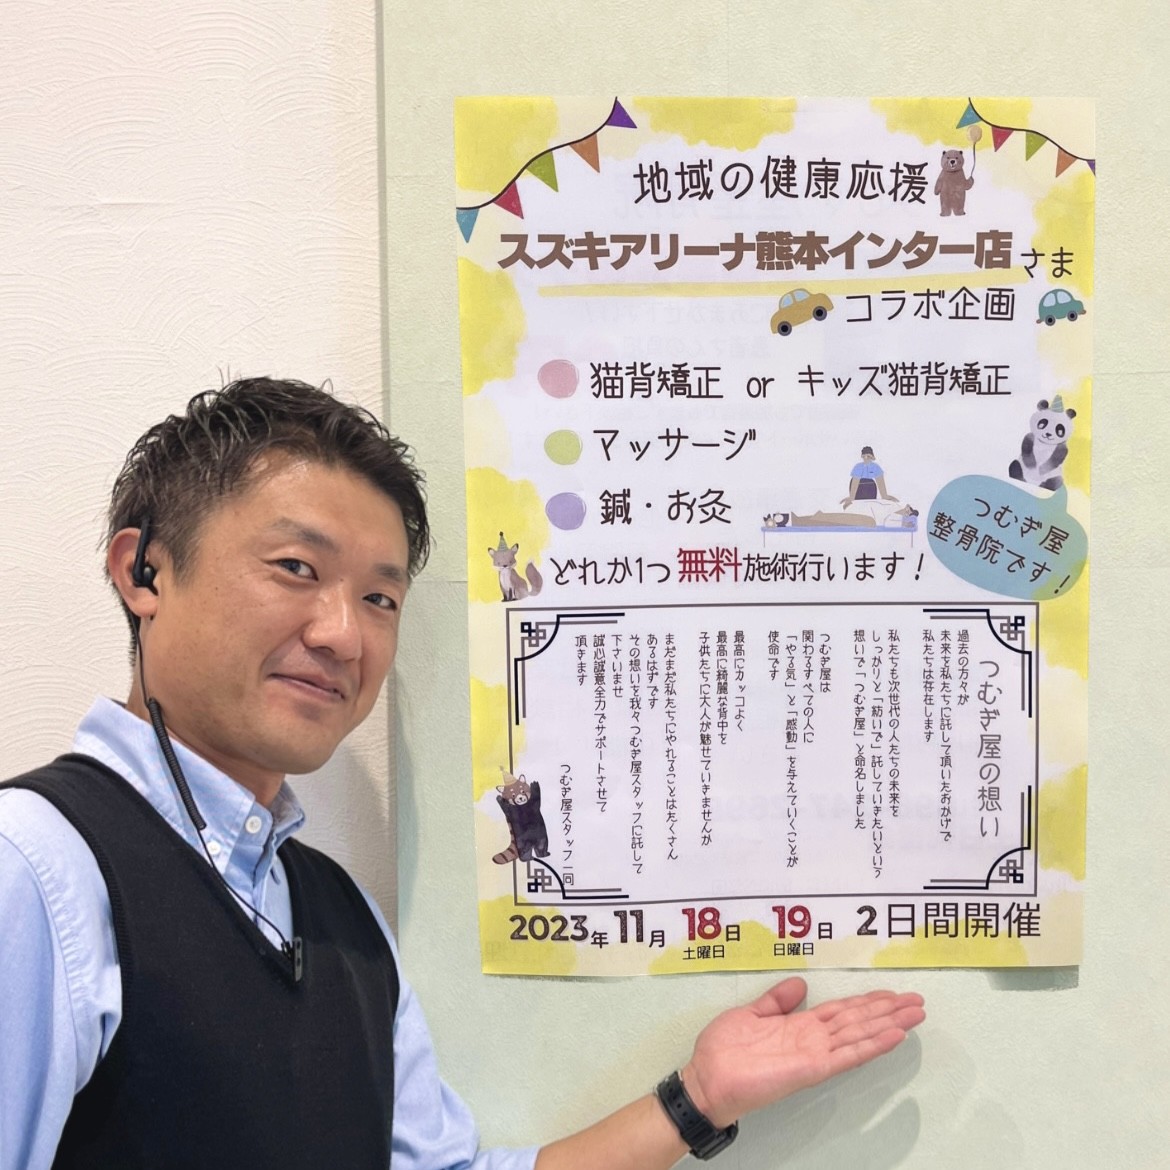 地域の健康応援
スズキアリーナ熊本インター店さま
コラボ企画
猫背矯正 or キッズ猫背矯正
マッサージ
鍼・お灸
つむぎ屋
整骨院です!
どれか1つ無料施術行います!
つむぎ屋の想い
過去の方々が
未来を私たちに託して頂いたおかげで
私たちは存在します
私たちも次世代の人たちの未来を
しっかりと「紡いで」託していきたいという
想いで「つむぎ屋」と命名しました
つむぎ屋は
関わるすべての人に
「やる気」と「感動」を与えていくことが
使命です
最高にカッコよく
最高に綺麗な背中を
子供たちに大人が魅せていきませんか
まだまだ私たちにやれることはたくさん
あるはずです
その想いを我々つむぎ屋スタッフに託して
下さいませ
誠心誠意全力でサポートさせて
頂きます
つむぎ屋スタッフ一同
2023年 11月 18日 19日 2日間開催
土曜日 日曜日